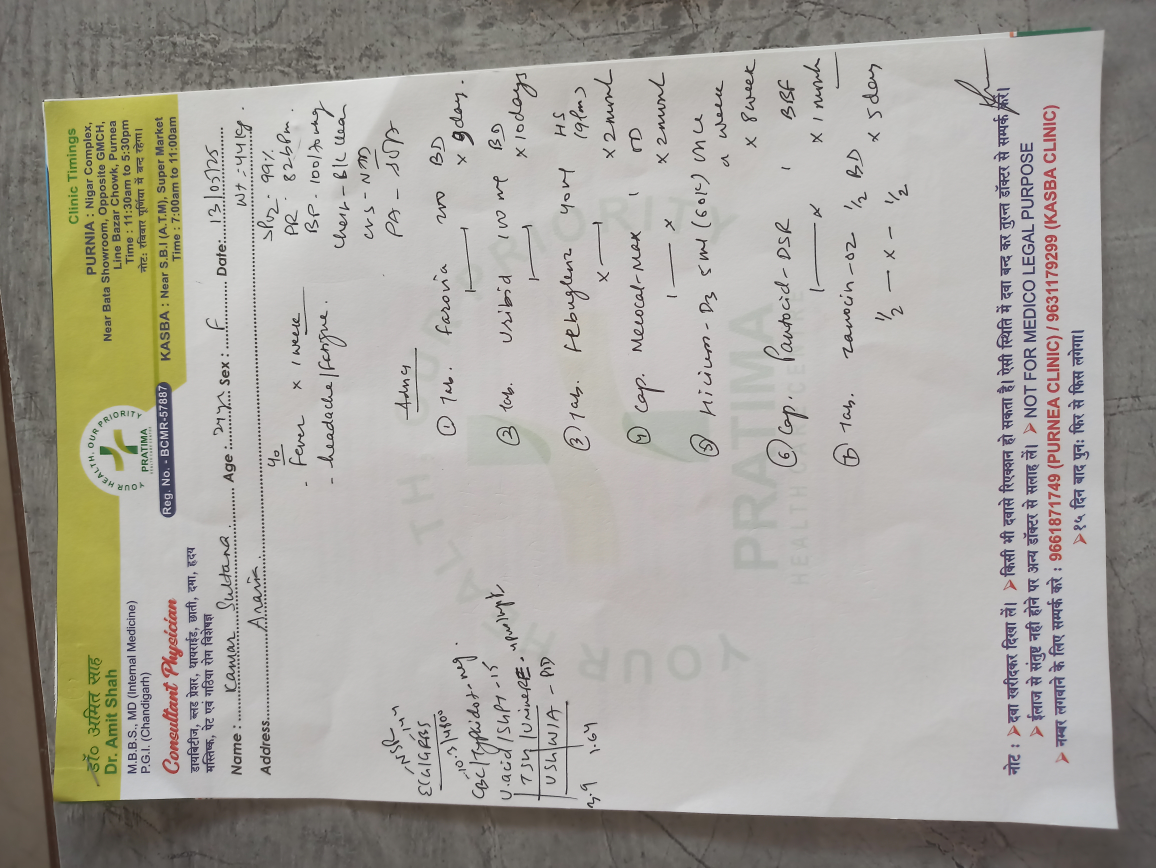 डॉ० अमित साह
Dr. Amit Shah
M.B.B.S., MD (Internal Medicine)
P.G.I. (Chandigarh)
Consultant Physician
डायबिटीज, ब्लड प्रेशर, थायराईड, छाती, दमा, हृदय
मस्तिष्क, पेट एवं गठिया रोग विशेषज्ञ
YOUR HEALTH, OUR PRIORITY
PRATIMA
Reg. No. - BCMR-57887
Clinic Timings
PURNIA : Nigar Complex,
Near Bata Showroom, Opposite GMCH,
Line Bazar Chowk, Purnea
Time : 11:30am to 5:30pm
नोट: रविवार पूर्णिया में बन्द रहेगा।
KASBA : Near S.B.I (A.T.M), Super Market
Time : 7:00am to 11:00am
Name : Kamar Sultana Age : Sex : F Date: 13/03/25
Address Araria Wt - 44kg.
SPO2 - 99%
PR - 82bpm.
BP - 100/70mg
Chest - B/L Clea
CVS - NAD
PA - Soft
- Fever x 1 week
- headache/fatigue.
ECG/GRBS
CBC/Typhidot - neg.
10.3/1400
U.acid/SGPT - 15
TSH/Urine RE
USG W/A - PID
3.9 1.64
Adv
① Tab. Farovia 200 BD
x 9 day.
② Tab. Uribid 100 mg BD
x 10 days
③ Tab. Febuglenz 40 mg HS
(9pm)
x — 1 x 2 month
④ Cap. Mecocal-max 1 OD
1 — x x 2 month
⑤ D3 5ml (60K) once
a week
x 8 week
⑥ Cap. Pantocid-DSR 1 BBF
1 — x x 1 month
⑦ Tab. Zanocin-OZ ½ BD
½ — x — ½ x 5 day
YOUR HEALTH OUR PRIORITY
PRATIMA
HEALTHCARE CENTRE
नोट : ➤ दवा खरीदकर दिखा लें। ➤ किसी भी दवासे रिएक्शन हो सकता है। ऐसी स्थिति में दवा बन्द कर तुरन्त डॉक्टर से सम्पर्क करें।
➤ ईलाज से संतुष्ट नही होने पर अन्य डॉक्टर से सलाह लें। ➤ NOT FOR MEDICO LEGAL PURPOSE
➤ नम्बर लगवाने के लिए सम्पर्क करे : 9661871749 (PURNEA CLINIC) / 9631179299 (KASBA CLINIC)
➤ १५ दिन बाद पुनः फिर से फिस लगेगा।